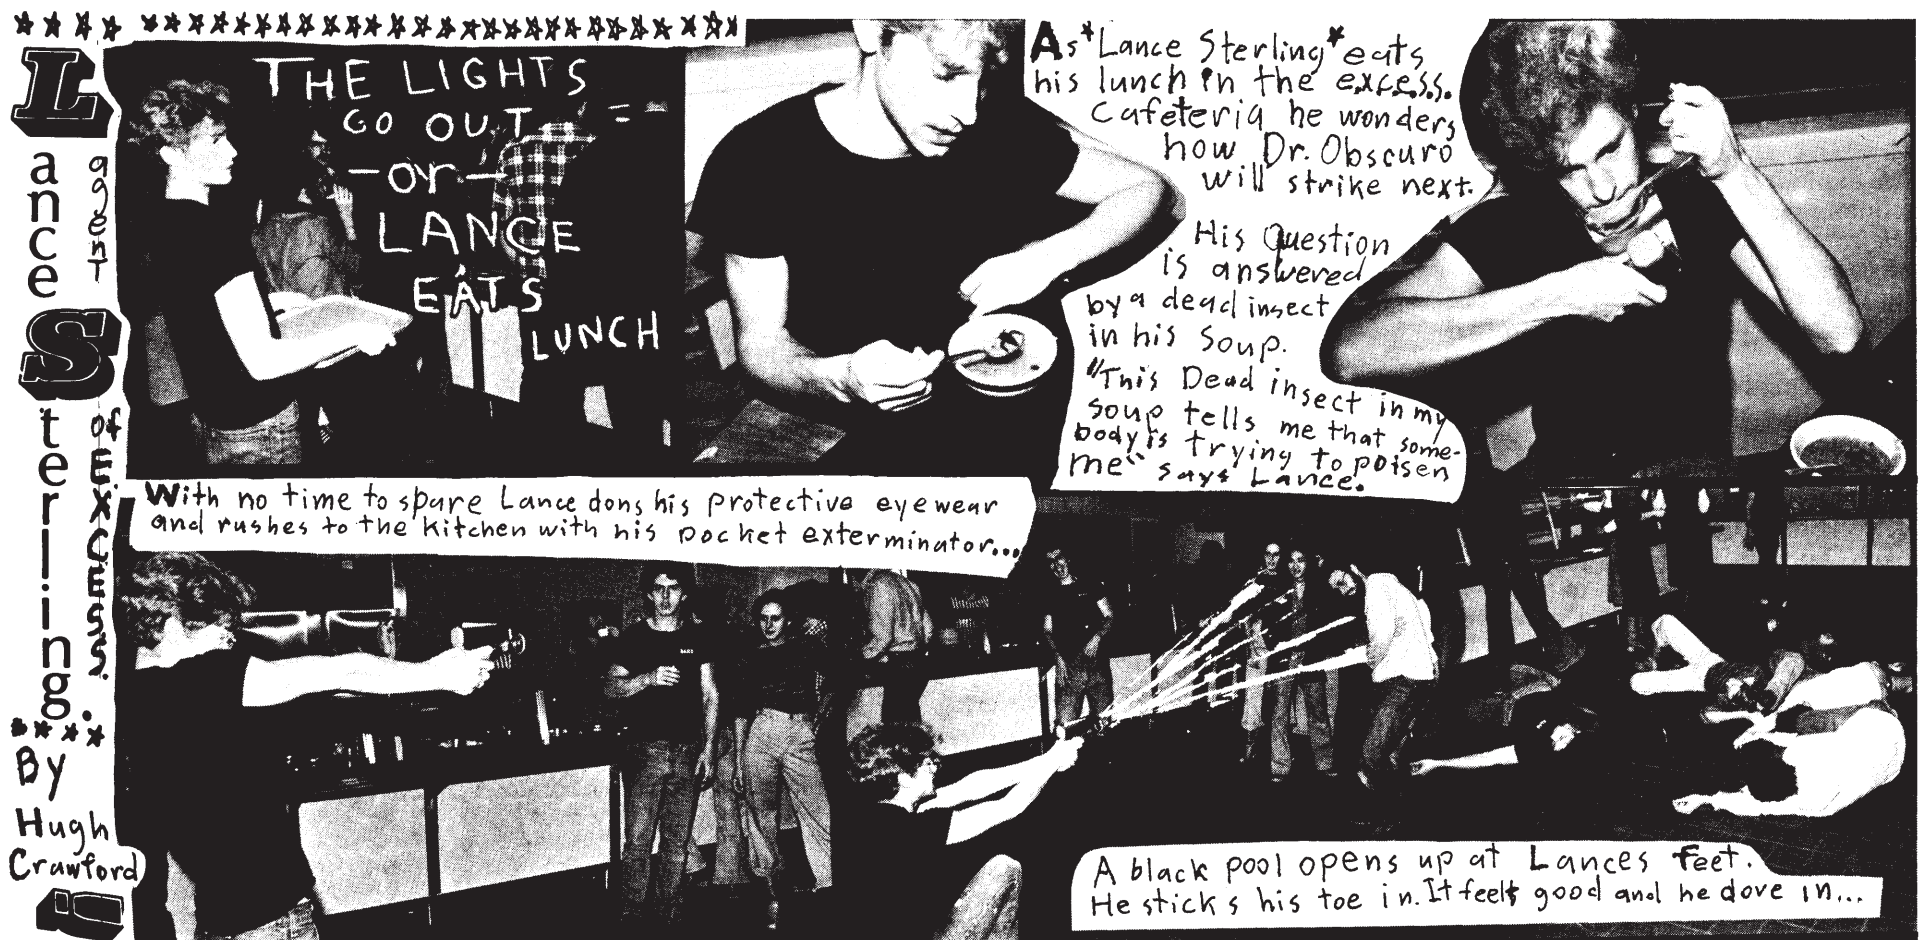 Lance Sterling.
agent of E.X.C.E.S.S.
By
Hugh
Crawford
THE LIGHTS
GO OUT
— or —
LANCE
EATS
LUNCH
As *Lance Sterling* eats
his lunch in the e.x.c.e.s.s.
Cafeteria he wonders
how Dr. Obscuro
will strike next.
His Question
is answered
by a dead insect
in his soup.
"This Dead insect in my
soup tells me that some-
body is trying to poisen
me" says Lance.
With no time to spare Lance dons his protective eyewear
and rushes to the kitchen with his pocket exterminator...
A black pool opens up at Lances feet.
He sticks his toe in. It feels good and he dove in...